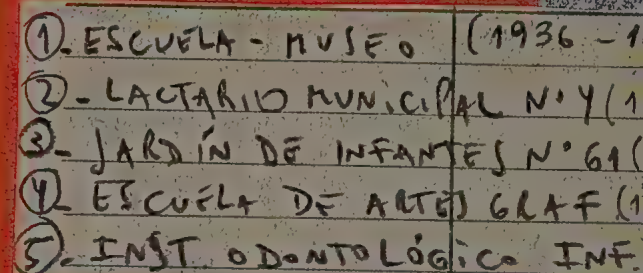 ①. ESCUELA - MUSEO (1936 - 1
②- LACTARIO MUNICIPAL N° 4 (1
③- JARDÍN DE INFANTES N° 61 (
④- ESCUELA DE ARTES GRAF (1
⑤. INST ODONTOLÓGICO INF